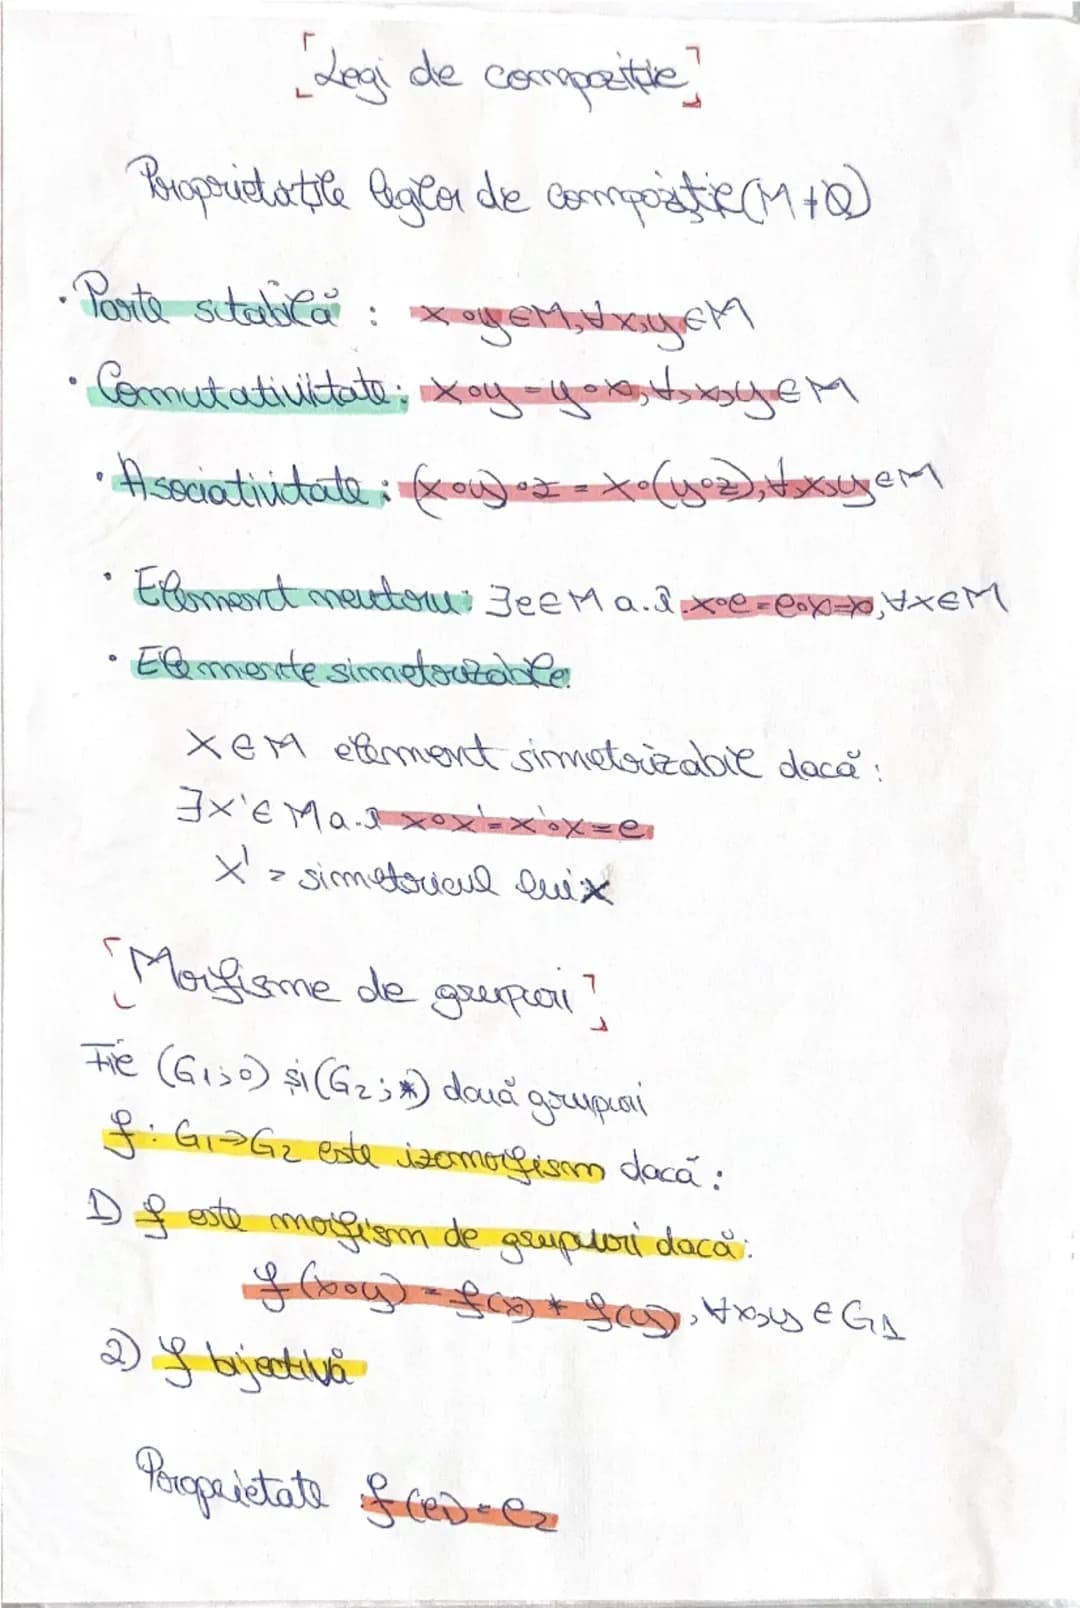 Legi de compoziție
Proprietățile legilor de compoziție (M ≠ Ø)
• Parte stabilă : x∘y∈M, ∀x,y∈M
• Comutativitate: x∘y=y∘x, ∀x,y∈M
• Asociativitate: (x∘y)∘z = x∘(y∘z), ∀x,y∈M
• Element neutru: ∃e∈M a.î. x∘e=e∘x=x, ∀x∈M
• Elemente simetrizabile:
x∈M element simetrizabil dacă :
∃x'∈M a.î x∘x'=x'∘x=e
x' = simetricul lui x
Morfisme de grupuri
Fie (G1;∘) și (G2;*) două grupuri
f: G1→G2 este izomorfism dacă :
1) f este morfism de grupuri dacă:
f(x∘y) = f(x) * f(y), ∀x,y ∈ G1
2) f bijectivă
Proprietate f(e1)=e2